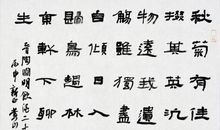 秋菊有佳
掇其英汎
物遠我遺
觴雖獨進
自傾日入
歸鳥趨林
東軒下聊
生
晉陶淵明飲酒二十
丙申